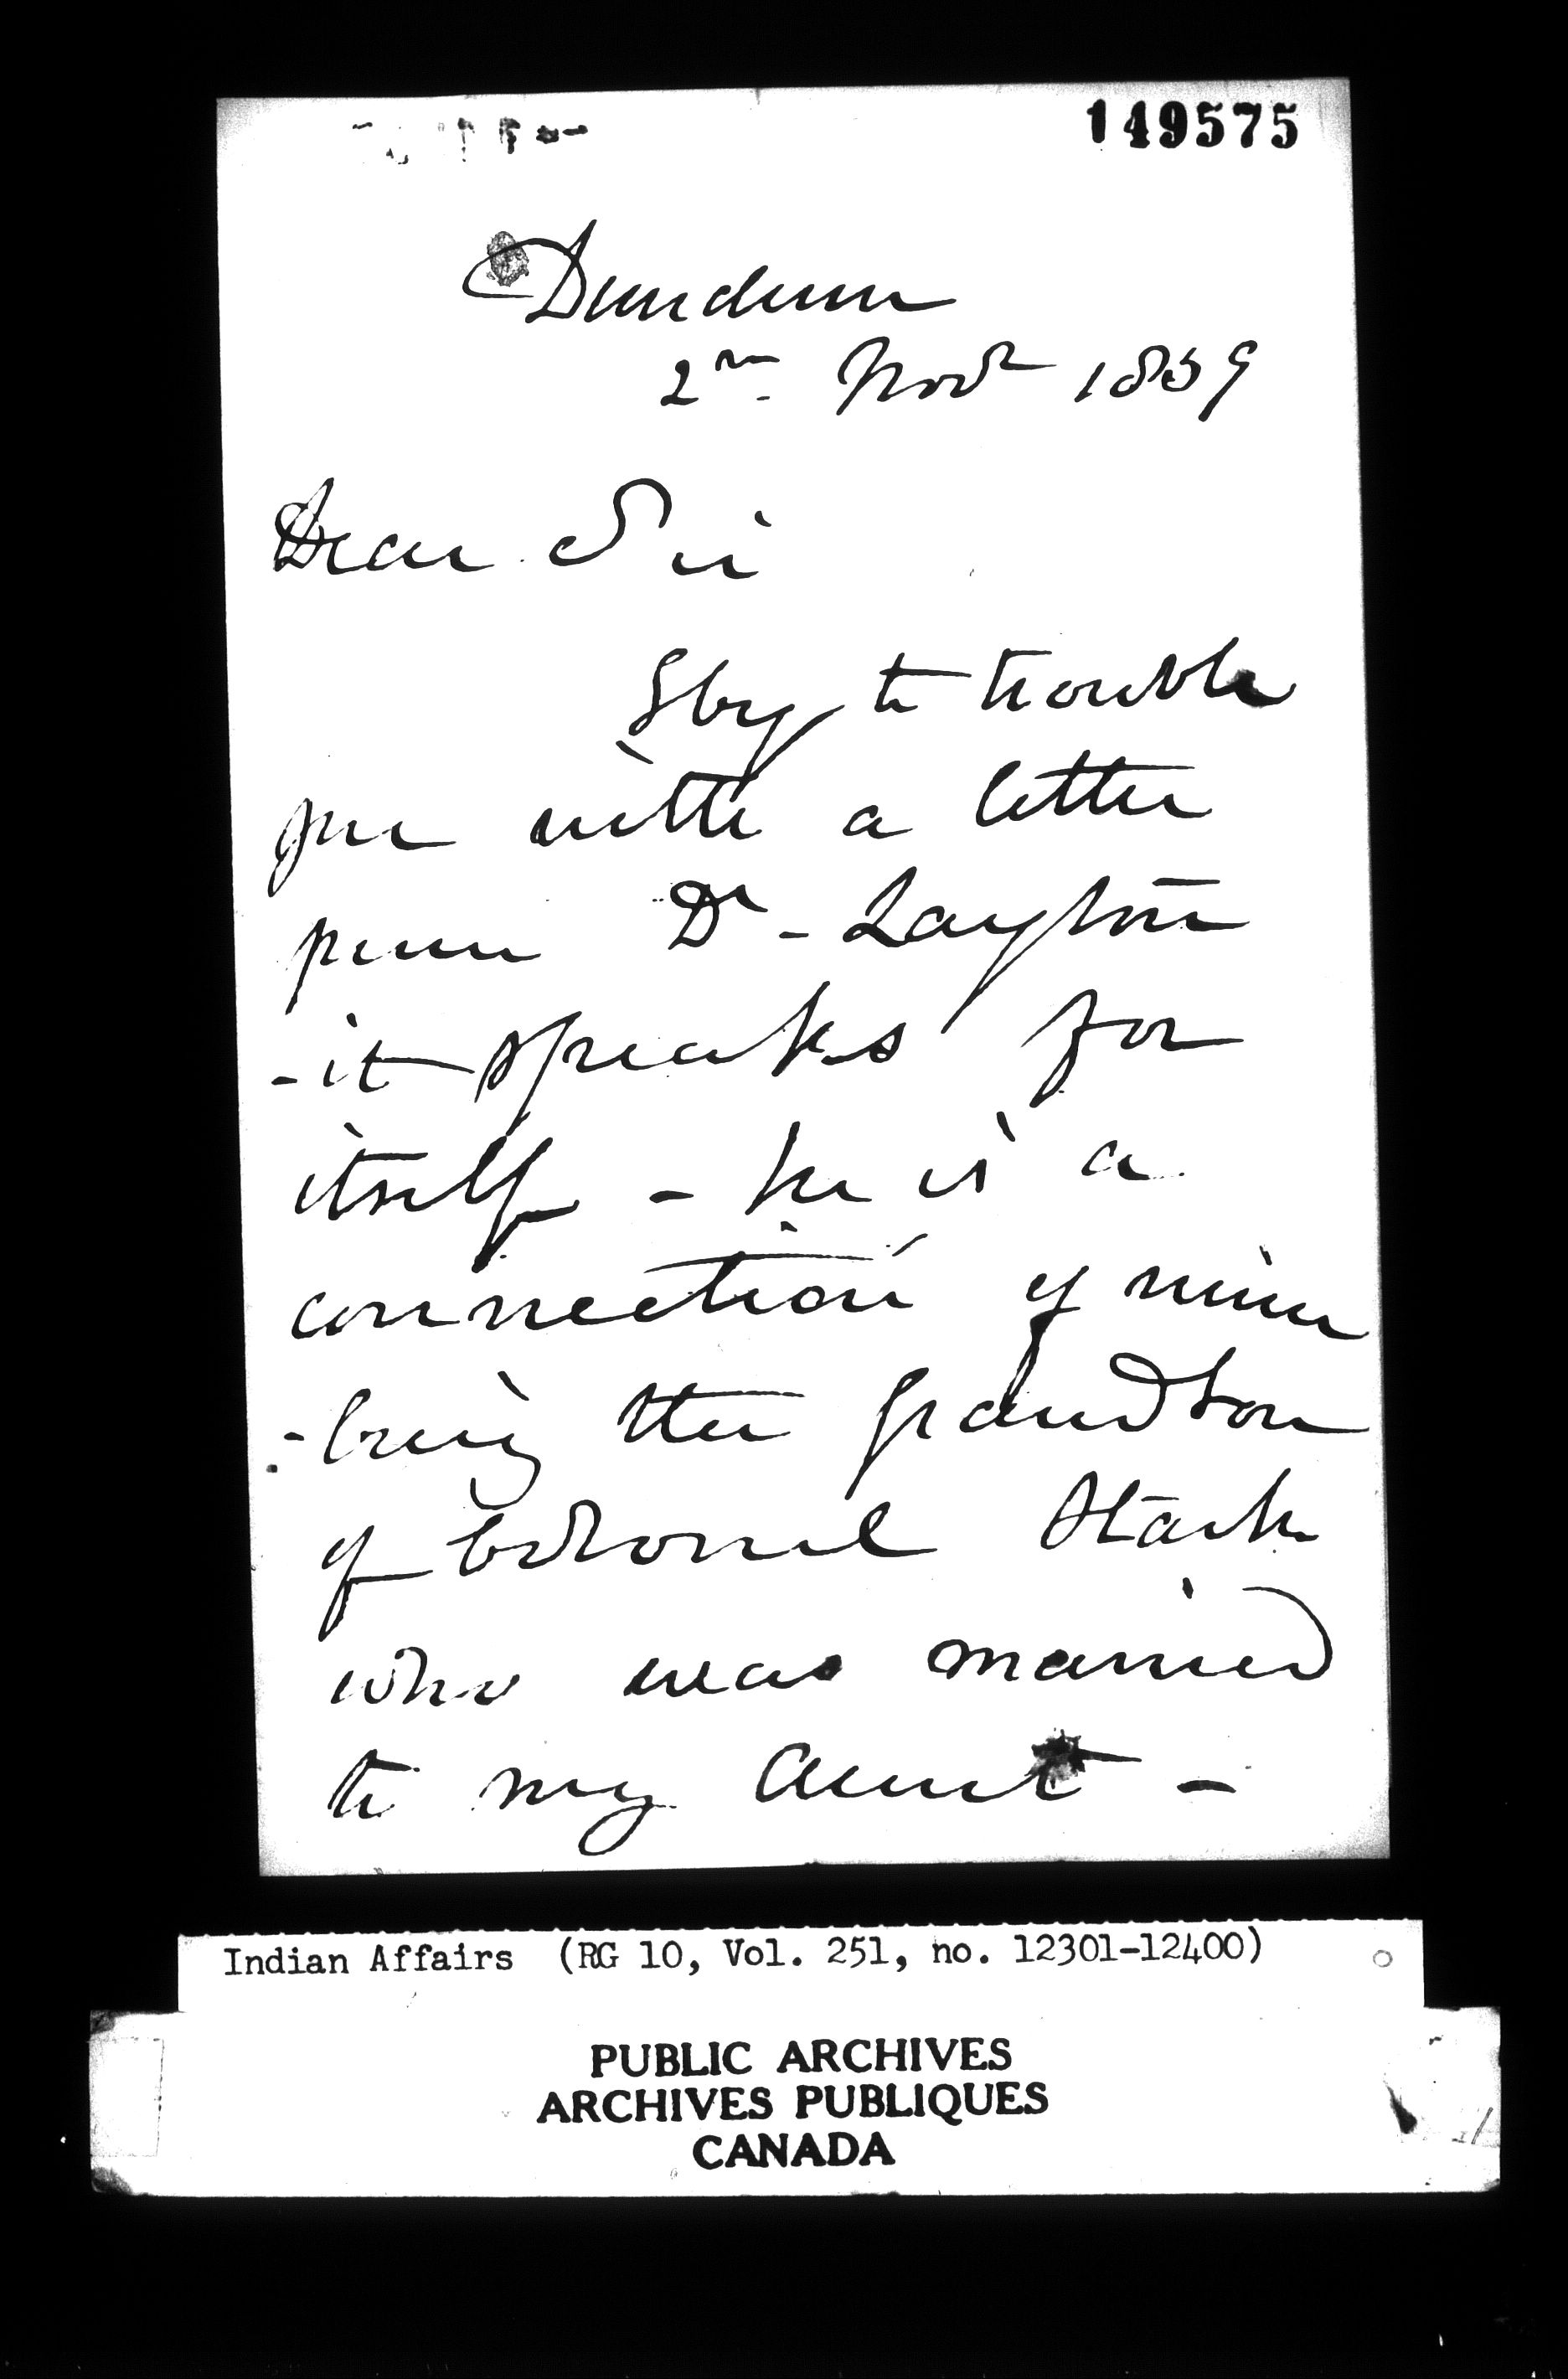 149575
Dundurn
2nd Novr 1859
Dear Sir
I beg to trouble
you with a letter
from Dr - Layton
- it speaks for
itself - he is a
connection of mine
- being the grandson
of Colonel Stark
who was married
to my Aunt -
Indian Affairs (RG 10, Vol. 251, no. 12301-12400)
PUBLIC ARCHIVES
ARCHIVES PUBLIQUES
CANADA